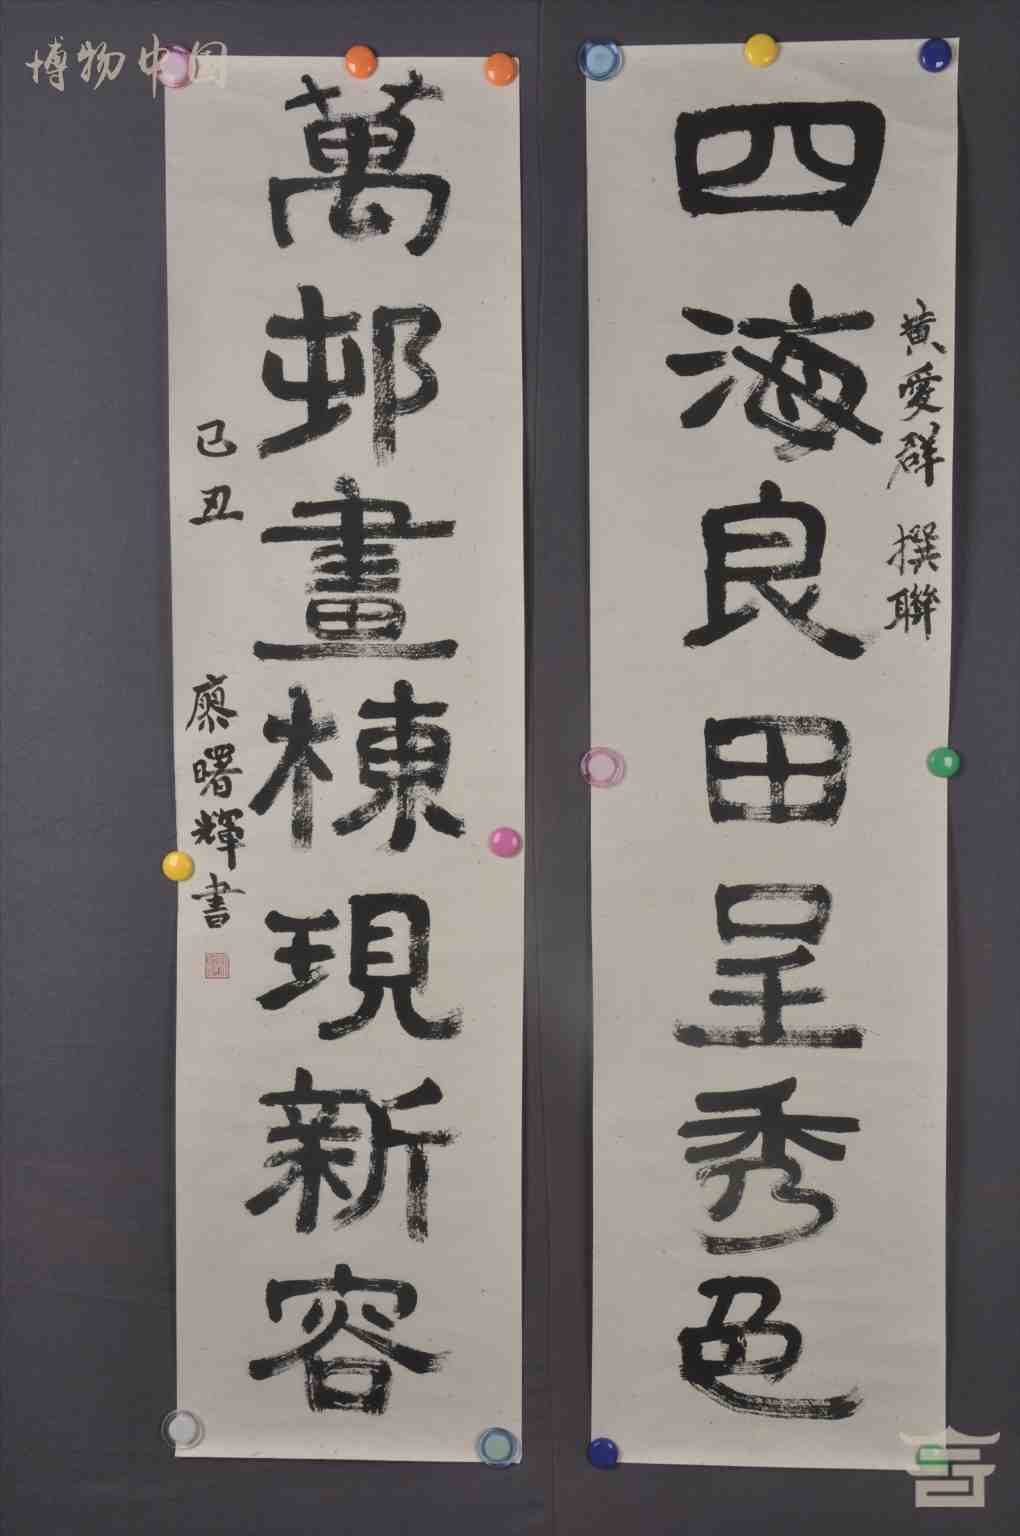 博物中国
四海良田呈秀色
黄愛群 撰聯
萬邨畫棟現新容
己丑 廖曙輝書